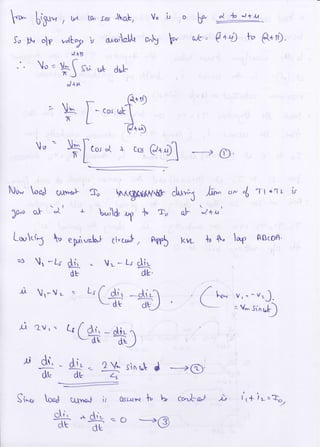 from figure, we can see that, Vo is 0 for α to α+u
So the o/p voltage is available only for ωt = (α+u) to (α+π).
∴ Vo = Vm/π ∫ Sin ωt dωt
α+π
α+u
= Vm/π [ - cos ωt ]
(α+π)
(α+u)
Vo = Vm/π [ cos α + cos (α+u) ] → ①.
Now load current Io during time on of T1 & T2 is
zero at 'α' & build up to Io at 'α+u'
Looking to equivalent circuit, Apply KVL to the loop ABCDA.
⇒ V1 - Ls di1/dt = V2 - Ls di2/dt.
ii V1 - V2 = Ls ( di1/dt - di2/dt ) . ( here V1 = -V2 ) = Vm sin ωt )
ii 2V1 = Ls ( di1/dt - di2/dt )
ii di1/dt - di2/dt = 2Vm/Ls sin ωt → ②
Since load current is assume to be constant ii i1 + i2 = Io,
di1/dt + di2/dt = 0 → ③